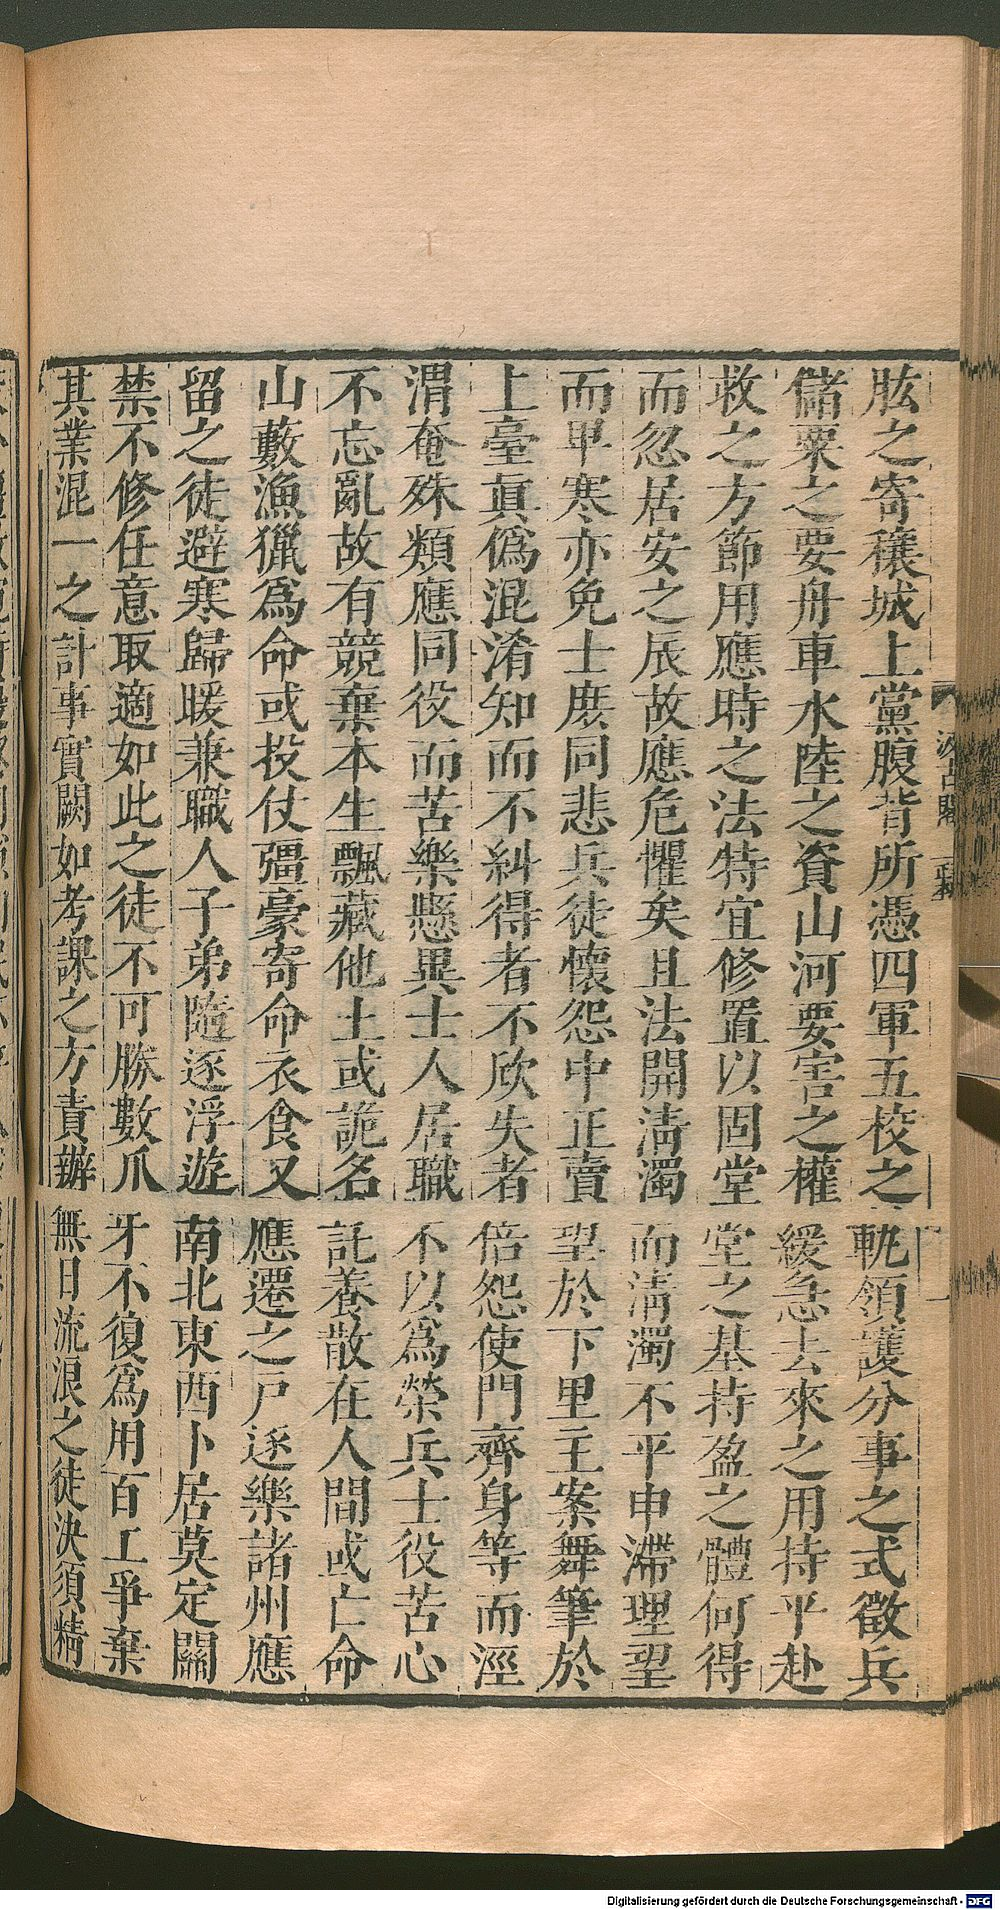 肱之寄穰城上黨腹背所憑四軍五校之軌領護分事之式徵兵
儲粟之要舟車水陸之資山河要害之權緩急去來之用持平赴
救之方節用應時之法特宜修置以固堂堂之基持盈之體何得
而忽居安之辰故應危懼矣且法開清濁而清濁不平申滯理望
而卑寒亦免士庶同悲兵徒懷怨中正賣望於下里主案舞筆於
上臺真偽混淆知而不糾得者不欣失者倍怨使門齊身等而涇
渭奄殊類應同役而苦樂懸異士人居職不以為榮兵士役苦心
不忘亂故有競棄本生飄藏他土或詭名託養散在人間或亡命
山藪漁獵為命或投仗彊豪寄命衣食又應遷之戶逐樂諸州應
留之徒避寒歸暖兼職人子弟隨逐浮遊南北東西卜居莫定關
禁不修任意取適如此之徒不可勝數爪牙不復為用百工爭棄
其業混一之計事實闕如考課之方責辦無日流浪之徒決須精
汲古閣
Digitalisierung gefördert durch die Deutsche Forschungsgemeinschaft - DFG